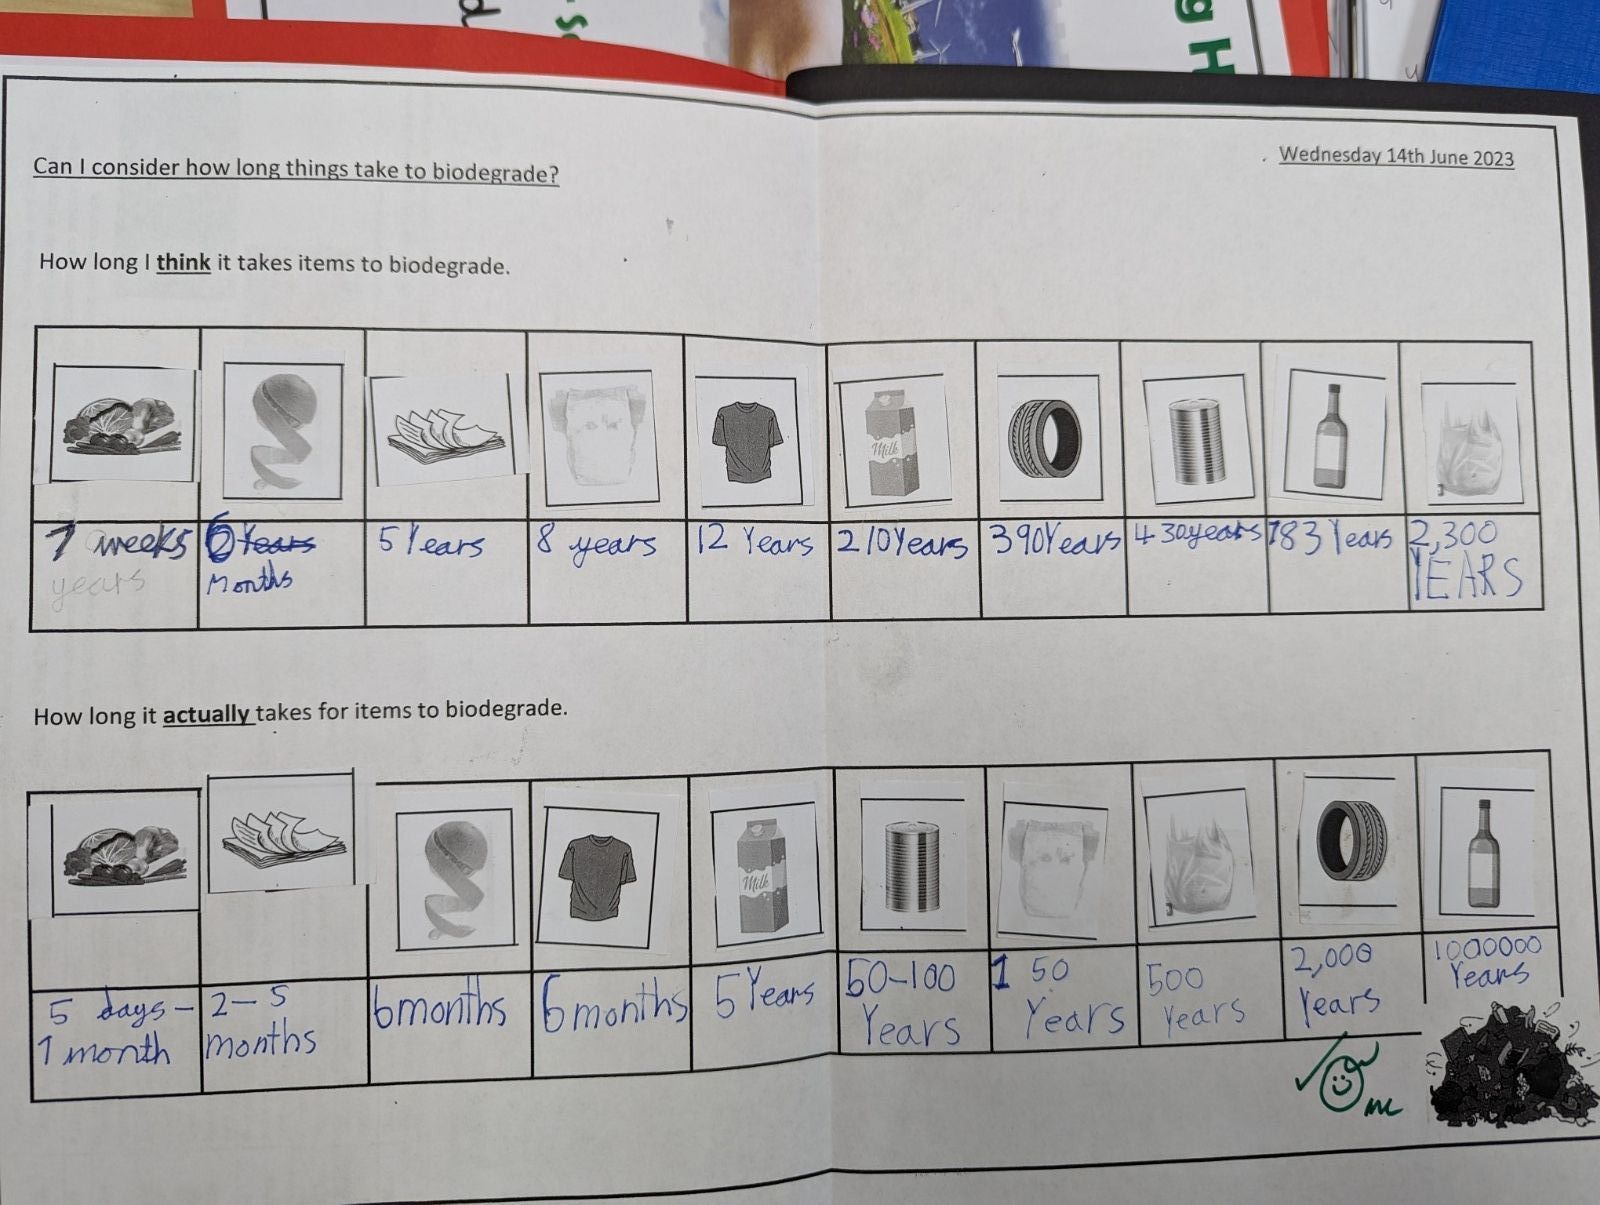 g H
Can I consider how long things take to biodegrade?
Wednesday 14th June 2023
How long I think it takes items to biodegrade.
Milk
7 weeks
years
6 Years
Months
5 Years
8 years
12 Years
210 Years
390 Years
430 years
783 Years
2,300
YEARS
How long it actually takes for items to biodegrade.
Milk
5 days -
1 month
2-5
months
6 months
6 months
5 Years
50-100
Years
150
Years
500
Years
2,000
Years
1000000
Years